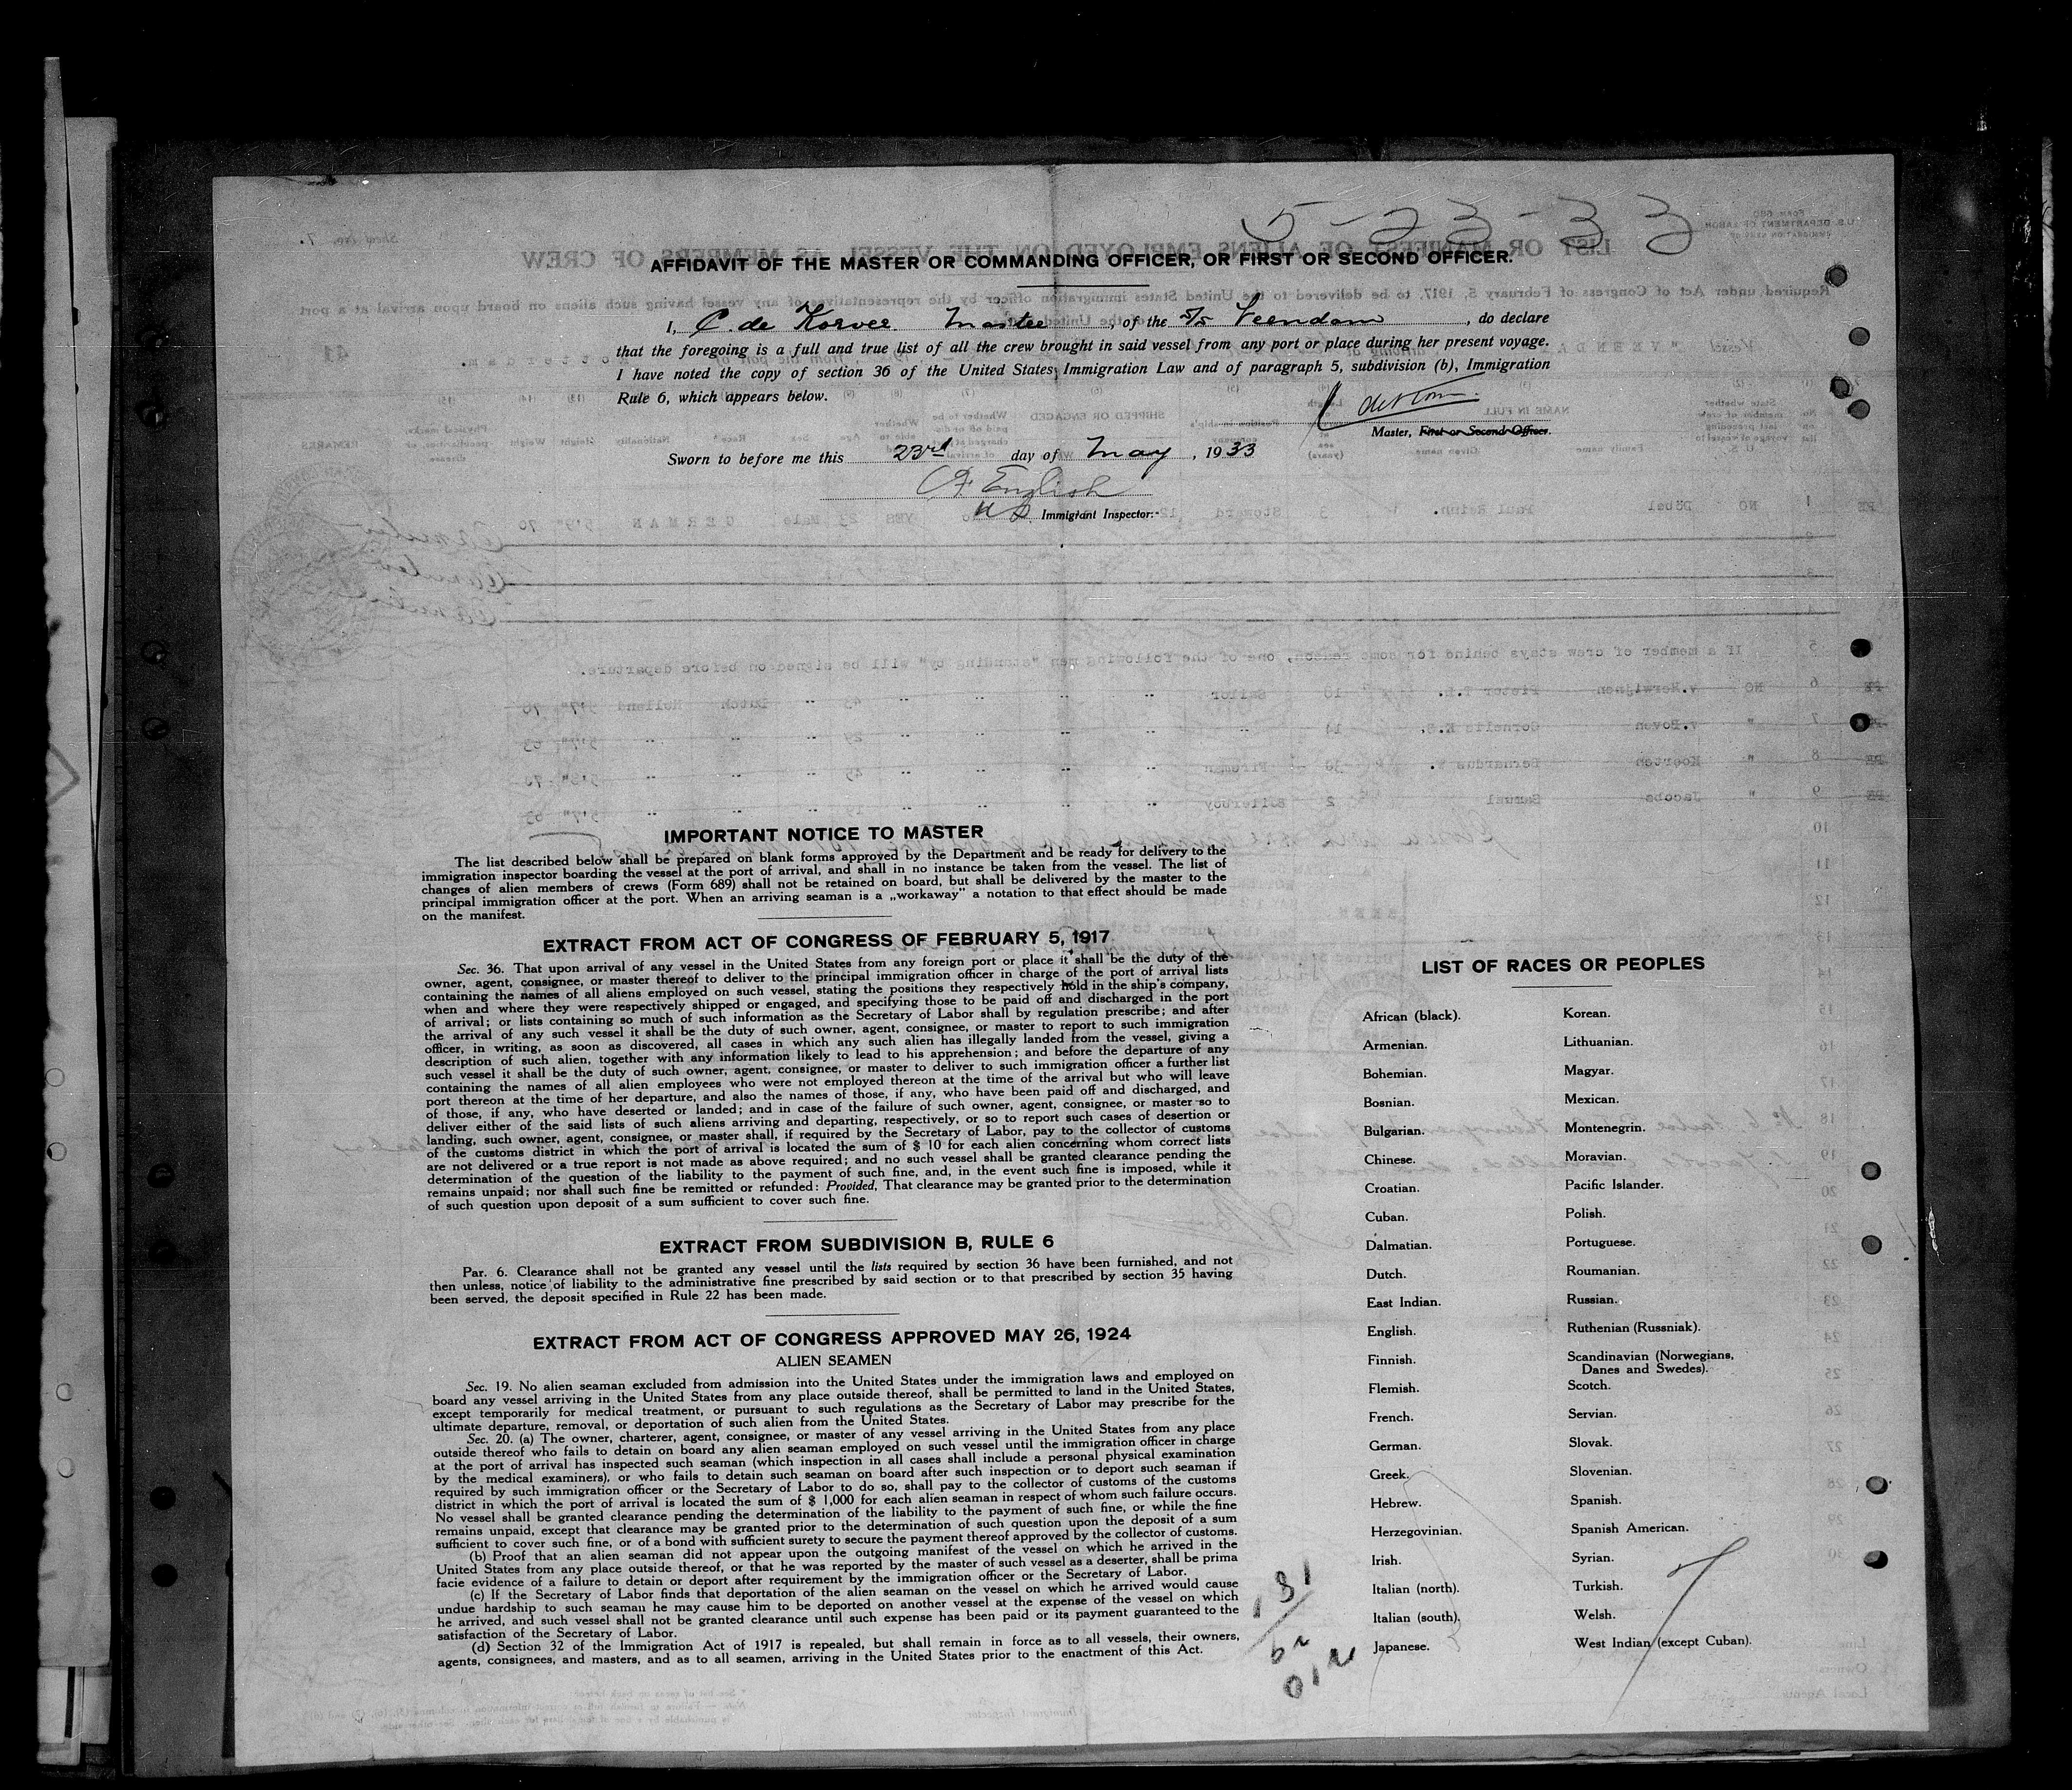 5-23-33
AFFIDAVIT OF THE MASTER OR COMMANDING OFFICER, OR FIRST OR SECOND OFFICER.
I, C. de Korver Master, of the S/S Veendam, do declare
that the foregoing is a full and true list of all the crew brought in said vessel from any port or place during her present voyage.
I have noted the copy of section 36 of the United States Immigration Law and of paragraph 5, subdivision (b), Immigration
Rule 6, which appears below.
Master, First or Second Officer.
Sworn to before me this 23rd day of May, 1933
English
Immigrant Inspector.
IMPORTANT NOTICE TO MASTER
The list described below shall be prepared on blank forms approved by the Department and be ready for delivery to the
immigration inspector boarding the vessel at the port of arrival, and shall in no instance be taken from the vessel. The list of
changes of alien members of crews (Form 689) shall not be retained on board, but shall be delivered by the master to the
principal immigration officer at the port. When an arriving seaman is a „workaway” a notation to that effect should be made
on the manifest.
EXTRACT FROM ACT OF CONGRESS OF FEBRUARY 5, 1917
Sec. 36. That upon arrival of any vessel in the United States from any foreign port or place it shall be the duty of the
owner, agent, consignee, or master thereof to deliver to the principal immigration officer in charge of the port of arrival lists
containing the names of all aliens employed on such vessel, stating the positions they respectively hold in the ship's company,
when and where they were respectively shipped or engaged, and specifying those to be paid off and discharged in the port
of arrival; or lists containing so much of such information as the Secretary of Labor shall by regulation prescribe; and after
the arrival of any such vessel it shall be the duty of such owner, agent, consignee, or master to report to such immigration
officer, in writing, as soon as discovered, all cases in which any such alien has illegally landed from the vessel, giving a
description of such alien, together with any information likely to lead to his apprehension; and before the departure of any
such vessel it shall be the duty of such owner, agent, consignee, or master to deliver to such immigration officer a further list
containing the names of all alien employees who were not employed thereon at the time of the arrival but who will leave
port thereon at the time of her departure, and also the names of those, if any, who have been paid off and discharged, and
of those, if any, who have deserted or landed; and in case of the failure of such owner, agent, consignee, or master so to
deliver either of the said lists of such aliens arriving and departing, respectively, or so to report such cases of desertion or
landing, such owner, agent, consignee, or master shall, if required by the Secretary of Labor, pay to the collector of customs
of the customs district in which the port of arrival is located the sum of $ 10 for each alien concerning whom correct lists
are not delivered or a true report is not made as above required; and no such vessel shall be granted clearance pending the
determination of the question of the liability to the payment of such fine, and, in the event such fine is imposed, while it
remains unpaid; nor shall such fine be remitted or refunded: Provided, That clearance may be granted prior to the determination
of such question upon deposit of a sum sufficient to cover such fine.
EXTRACT FROM SUBDIVISION B, RULE 6
Par. 6. Clearance shall not be granted any vessel until the lists required by section 36 have been furnished, and not
then unless, notice of liability to the administrative fine prescribed by said section or to that prescribed by section 35 having
been served, the deposit specified in Rule 22 has been made.
EXTRACT FROM ACT OF CONGRESS APPROVED MAY 26, 1924
ALIEN SEAMEN
Sec. 19. No alien seaman excluded from admission into the United States under the immigration laws and employed on
board any vessel arriving in the United States from any place outside thereof, shall be permitted to land in the United States,
except temporarily for medical treatment, or pursuant to such regulations as the Secretary of Labor may prescribe for the
ultimate departure, removal, or deportation of such alien from the United States.
Sec. 20. (a) The owner, charterer, agent, consignee, or master of any vessel arriving in the United States from any place
outside thereof who fails to detain on board any alien seaman employed on such vessel until the immigration officer in charge
at the port of arrival has inspected such seaman (which inspection in all cases shall include a personal physical examination
by the medical examiners), or who fails to detain such seaman on board after such inspection or to deport such seaman if
required by such immigration officer or the Secretary of Labor to do so, shall pay to the collector of customs of the customs
district in which the port of arrival is located the sum of $ 1,000 for each alien seaman in respect of whom such failure occurs.
No vessel shall be granted clearance pending the determination of the liability to the payment of such fine, or while the fine
remains unpaid, except that clearance may be granted prior to the determination of such question upon the deposit of a sum
sufficient to cover such fine, or of a bond with sufficient surety to secure the payment thereof approved by the collector of customs.
(b) Proof that an alien seaman did not appear upon the outgoing manifest of the vessel on which he arrived in the
United States from any place outside thereof, or that he was reported by the master of such vessel as a deserter, shall be prima
facie evidence of a failure to detain or deport after requirement by the immigration officer or the Secretary of Labor.
(c) If the Secretary of Labor finds that deportation of the alien seaman on the vessel on which he arrived would cause
undue hardship to such seaman he may cause him to be deported on another vessel at the expense of the vessel on which
he arrived, and such vessel shall not be granted clearance until such expense has been paid or its payment guaranteed to the
satisfaction of the Secretary of Labor.
(d) Section 32 of the Immigration Act of 1917 is repealed, but shall remain in force as to all vessels, their owners,
agents, consignees, and masters, and as to all seamen, arriving in the United States prior to the enactment of this Act.
LIST OF RACES OR PEOPLES
African (black).
Armenian.
Bohemian.
Bosnian.
Bulgarian.
Chinese.
Croatian.
Cuban.
Dalmatian.
Dutch.
East Indian.
English.
Finnish.
Flemish.
French.
German.
Greek.
Hebrew.
Herzegovinian.
Irish.
Italian (north).
Italian (south).
Japanese.
Korean.
Lithuanian.
Magyar.
Mexican.
Montenegrin.
Moravian.
Pacific Islander.
Polish.
Portuguese.
Roumanian.
Russian.
Ruthenian (Russniak).
Scandinavian (Norwegians,
Danes and Swedes).
Scotch.
Servian.
Slovak.
Slovenian.
Spanish.
Spanish American.
Syrian.
Turkish.
Welsh.
West Indian (except Cuban).